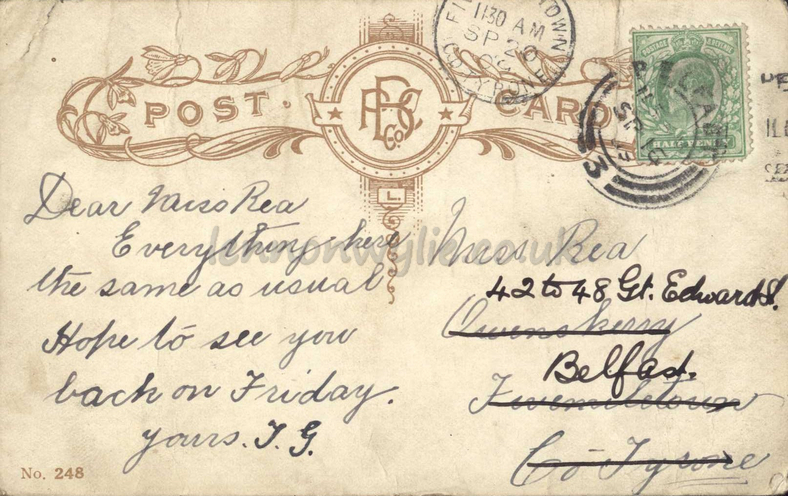 POST CARD
FI TOWN
11 30 AM
SP 26
CO. TYRONE
BELFAST
3
POSTAGE REVENUE
HALFPENNY
L.
lennonwylie.co.uk
Dear Miss Rea
Everything here
the same as usual
Hope to see you
back on Friday.
yours. J. G.
Miss Rea
42 to 48 Gt. Edward St.
Belfast.
Co Tyrone
No. 248